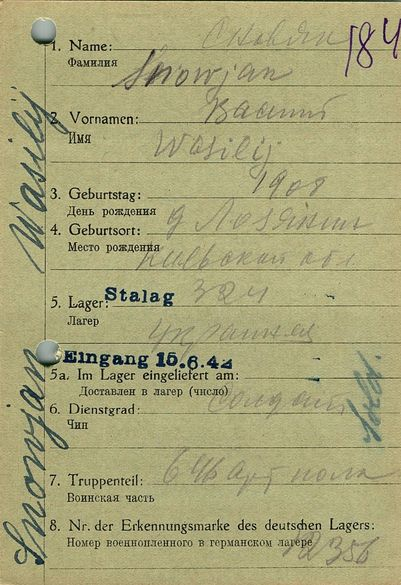 184
1. Name:
Фамилия
Snowjan
2. Vornamen:
Имя
Wasilij
Wasilij
3. Geburtstag: 1908
День рождения
4. Geburtsort:
Место рождения
5. Lager: Stalag 324
Лагерь
Eingang 15.6.42
5a. Im Lager eingeliefert am:
Доставлен в лагерь (число)
6. Dienstgrad: солдат
Чин
Sold.
7. Truppenteil:
Воинская часть
8. Nr. der Erkennungsmarke des deutschen Lagers:
Номер военнопленного в германском лагере 12356
Snowjan